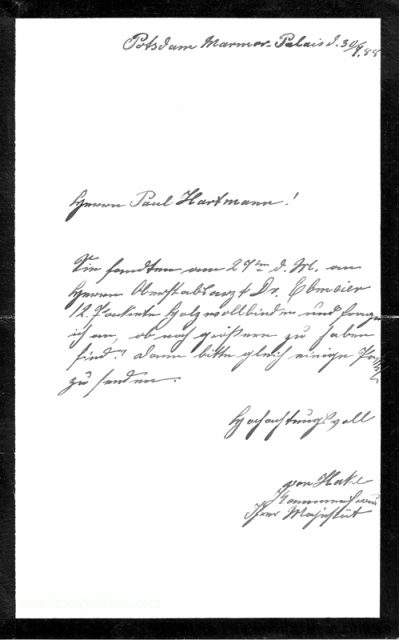 Potsdam Marmor-Palais d. 30/9. 88
Herrn Paul Hartmann!
Sie sandten am 27ten d. M. an
Herrn Oberstabsarzt Dr. Ebmeier
12 Packete Holzwollbinden und frage
ich an, ob noch größere zu haben
sind? dann bitte gleich einige
zu senden.
Hochachtungsvoll
von Hake
Ihrer Majestät